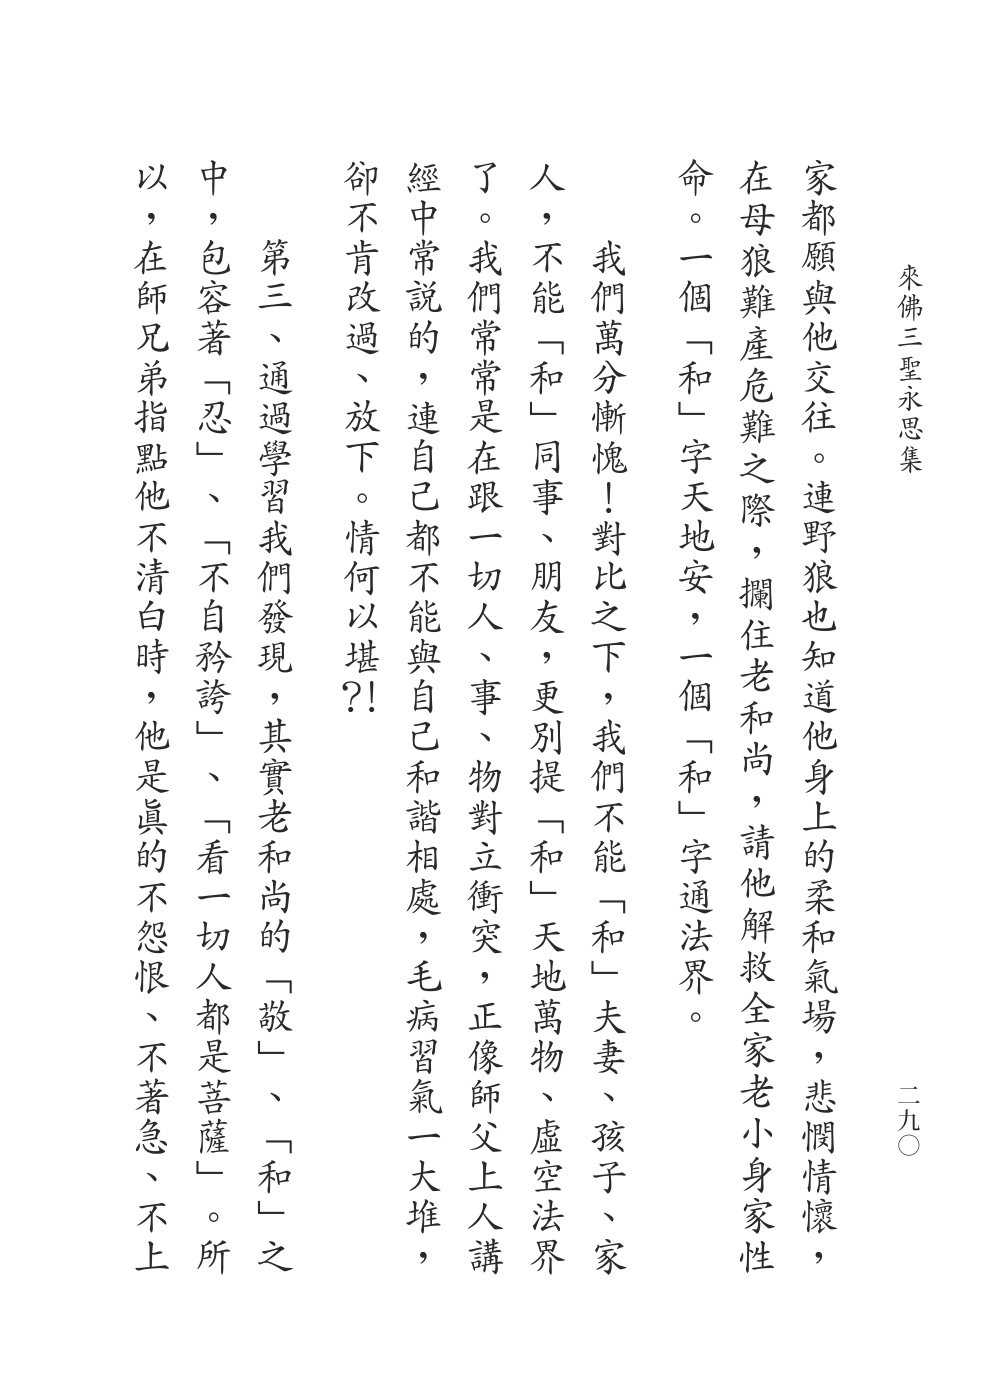 來佛三聖永思集
二九〇
家都願與他交往。連野狼也知道他身上的柔和氣場，悲憫情懷，
在母狼難產危難之際，攔住老和尚，請他解救全家老小身家性
命。一個「和」字天地安，一個「和」字通法界。
我們萬分慚愧！對比之下，我們不能「和」夫妻、孩子、家
人，不能「和」同事、朋友，更別提「和」天地萬物、虛空法界
了。我們常常是在跟一切人、事、物對立衝突，正像師父上人講
經中常說的，連自己都不能與自己和諧相處，毛病習氣一大堆，
卻不肯改過、放下。情何以堪?!
第三、通過學習我們發現，其實老和尚的「敬」、「和」之
中，包容著「忍」、「不自矜誇」、「看一切人都是菩薩」。所
以，在師兄弟指點他不清白時，他是真的不怨恨、不著急、不上